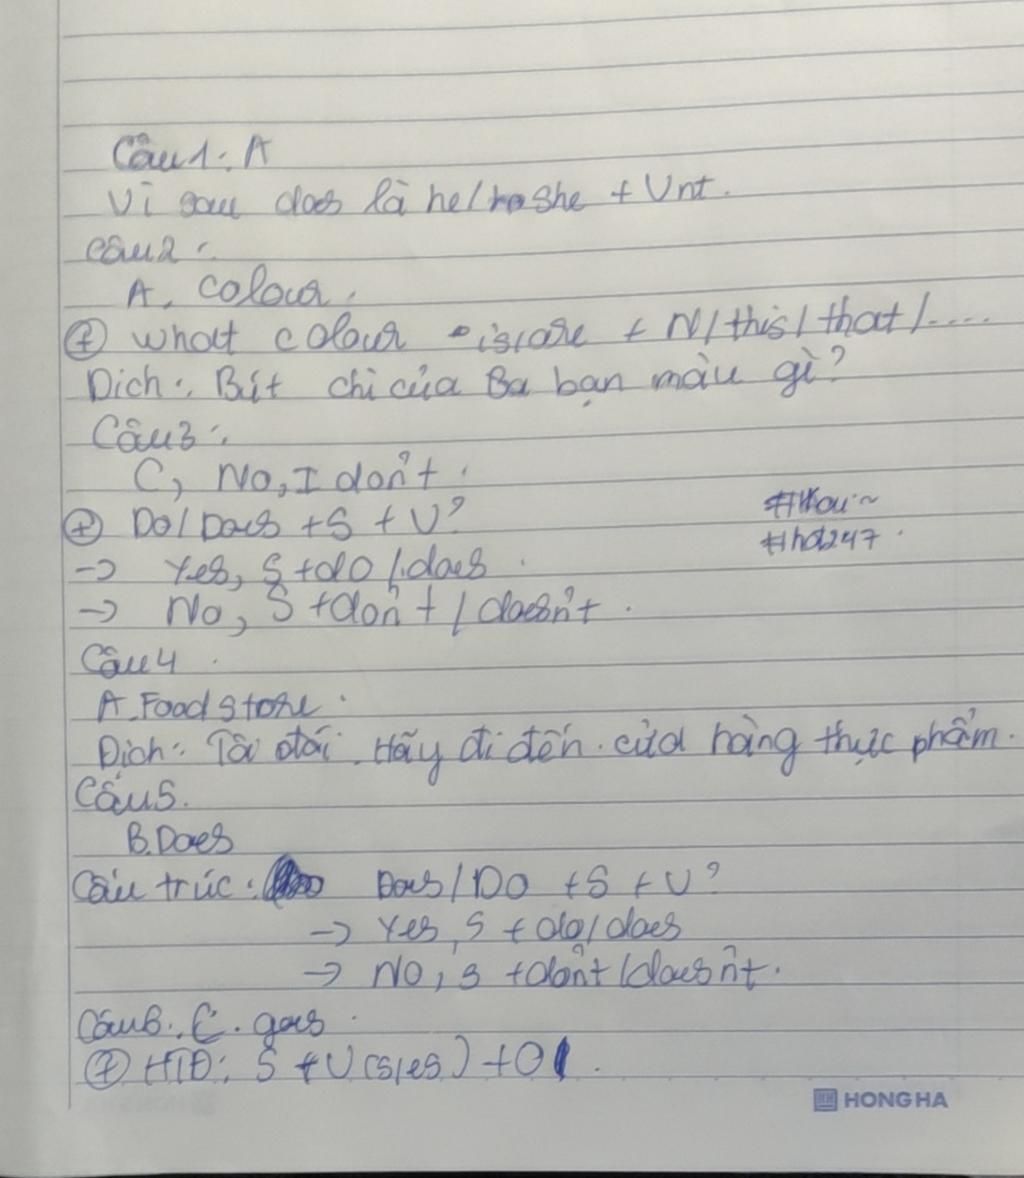 Câu 1: A
Vì sau does là he/she + Vnt.
Câu 2:
A. colour.
(+) What colour is/are + N/this/that/....
Dịch: Bút chì của Ba bạn màu gì?
Câu 3:
C, No, I don't.
(+) Do/Does +S +V?
#thou~
#hd247.
-> Yes, S +do/does.
-> No, S +don't/doesn't.
Câu 4.
A. Food store.
Dịch: Tôi đói. Hãy đi đến cửa hàng thực phẩm.
Câu 5.
B. Does
Cấu trúc: Does/Do +S +V?
-> Yes, S + do/does
-> No, S +don't/doesn't.
Câu 6. C. goes.
(+) HTĐ: S + V(s/es) + O
HONG HA